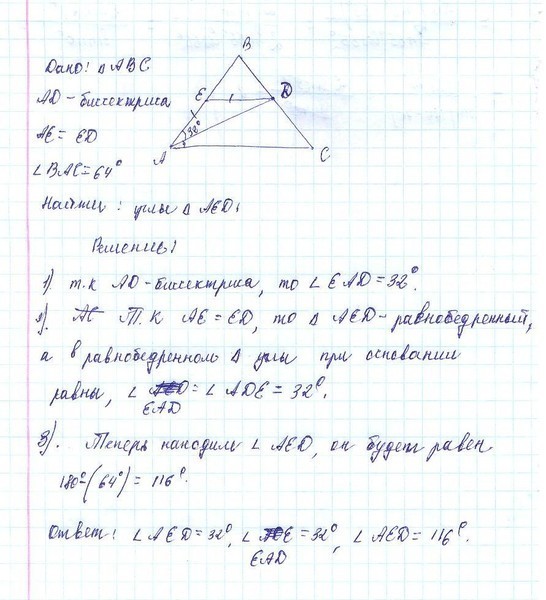 Дано: △ ABC
AD - биссектриса
AE = ED
∠ BAC = 64°
Найти: углы △ AED.
B
E
D
30°
A
C
Решение:
1). т.к AD - биссектриса, то ∠ EAD = 32°.
2). Т.к AE = ED, то △ AED - равнобедренный,
а в равнобедренном △ углы при основании
равны, ∠ EAD = ∠ ADE = 32°.
3). Теперь находим ∠ AED, он будет равен
180° - (64°) = 116°.
Ответ: ∠ AED = 32°, ∠ EAD = 32°, ∠ AED = 116°.